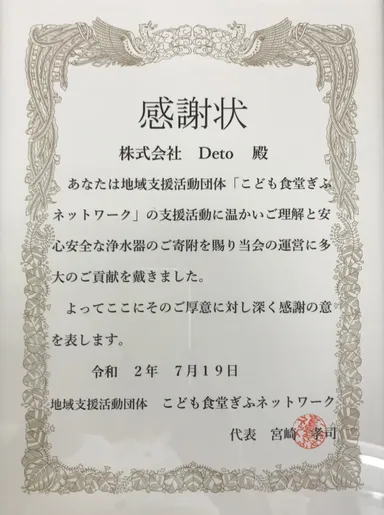 感謝状
株式会社 Deto 殿
あなたは地域支援活動団体「こども食堂ぎふ
ネットワーク」の支援活動に温かいご理解と安
心安全な浄水器のご寄附を賜り当会の運営に多
大のご貢献を戴きました。
よってここにそのご厚意に対し深く感謝の意
を表します。
令和 2年 7月19日
地域支援活動団体 こども食堂ぎふネットワーク
代表 宮崎 孝司